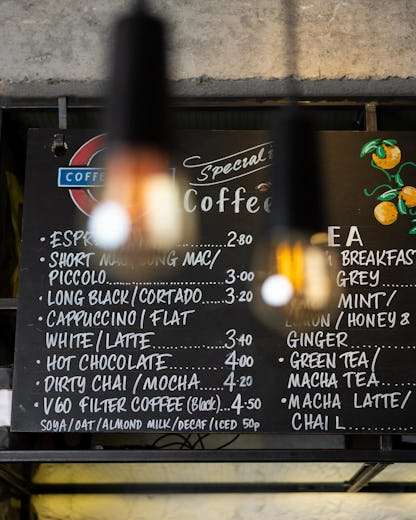 COFFE
Speciali
Coffee
• ESPR.......2.80
• SHORT MAC/LONG MAC/
PICCOLO..........3.00
• LONG BLACK/CORTADO...3.20
• CAPPUCCINO/FLAT
WHITE/LATTE.......3.40
• HOT CHOCOLATE......4.00
• DIRTY CHAI/MOCHA....4.20
• V60 FILTER COFFEE (Black)...4.50
SOYA/OAT/ALMOND MILK/DECAF/ICED 50p
EA
BREAKFAST
GREY
MINT/
/HONEY &
GINGER
• GREEN TEA/
MACHA TEA
• MACHA LATTE/
CHAI L